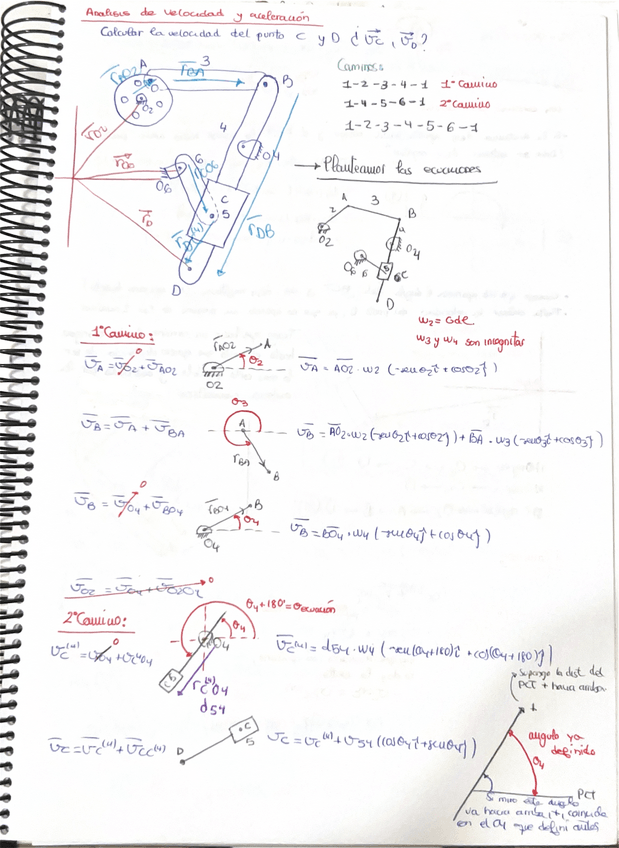 Analisis de velocidad y aceleración
Calcular la velocidad del punto C y D ¿ v⃗C, v⃗D?
Caminos:
1-2-3-4-1 1º Camino
1-4-5-6-1 2º Camino
1-2-3-4-5-6-1
→ Planteamos las ecuaciones
r̅AO2 A 3 r̅BA B
O2 r̅O2 4 O4
r̅O6 O6 6 C 5
r̅D r̅DB D
A 3 B 2 O2 4 O4 O6 6 5 C D
ω2 = cte
ω3 y ω4 son incognitas
1º Camino:
v̅A = v̅O2 + v̅AO2
0
r̅AO2 A θ2 O2
v̅A = A̅O̅2 · ω2 (-senθ2 i + cosθ2 j)
v̅B = v̅A + v̅BA
θ3 A rBA B
v̅B = A̅O̅2·ω2 (-senθ2 i + cosθ2 j) + B̅A̅ · ω3 (-senθ3 i + cosθ3 j)
v̅B = v̅O4 + v̅BO4
0
r̅BO4 B θ4 O4
v̅B = B̅O̅4 · ω4 (-senθ4 i + cosθ4 j)
v̅O2 = v̅O4 + v̅O2O4
0
2º Camino:
θ4 + 180º = θecuación
θ4 O4
vC(4) = v̅O4 + vC(4)O4
0
rC(4)O4
d54
v̅C(4) = d54 · ω4 (-sen(θ4+180) i + cos(θ4+180) j)
v̅C = v̅C(4) + v̅CC(4)
D C 5
v̅C = vC(4) + v54 (cosθ4 i + senθ4 j)
Supongo la dist. del
PCT + hacia arriba
angulo ya
definido
θ4
PCT
Si miro este angulo
va hacia arriba, coincide
en el θ4 que defini antes